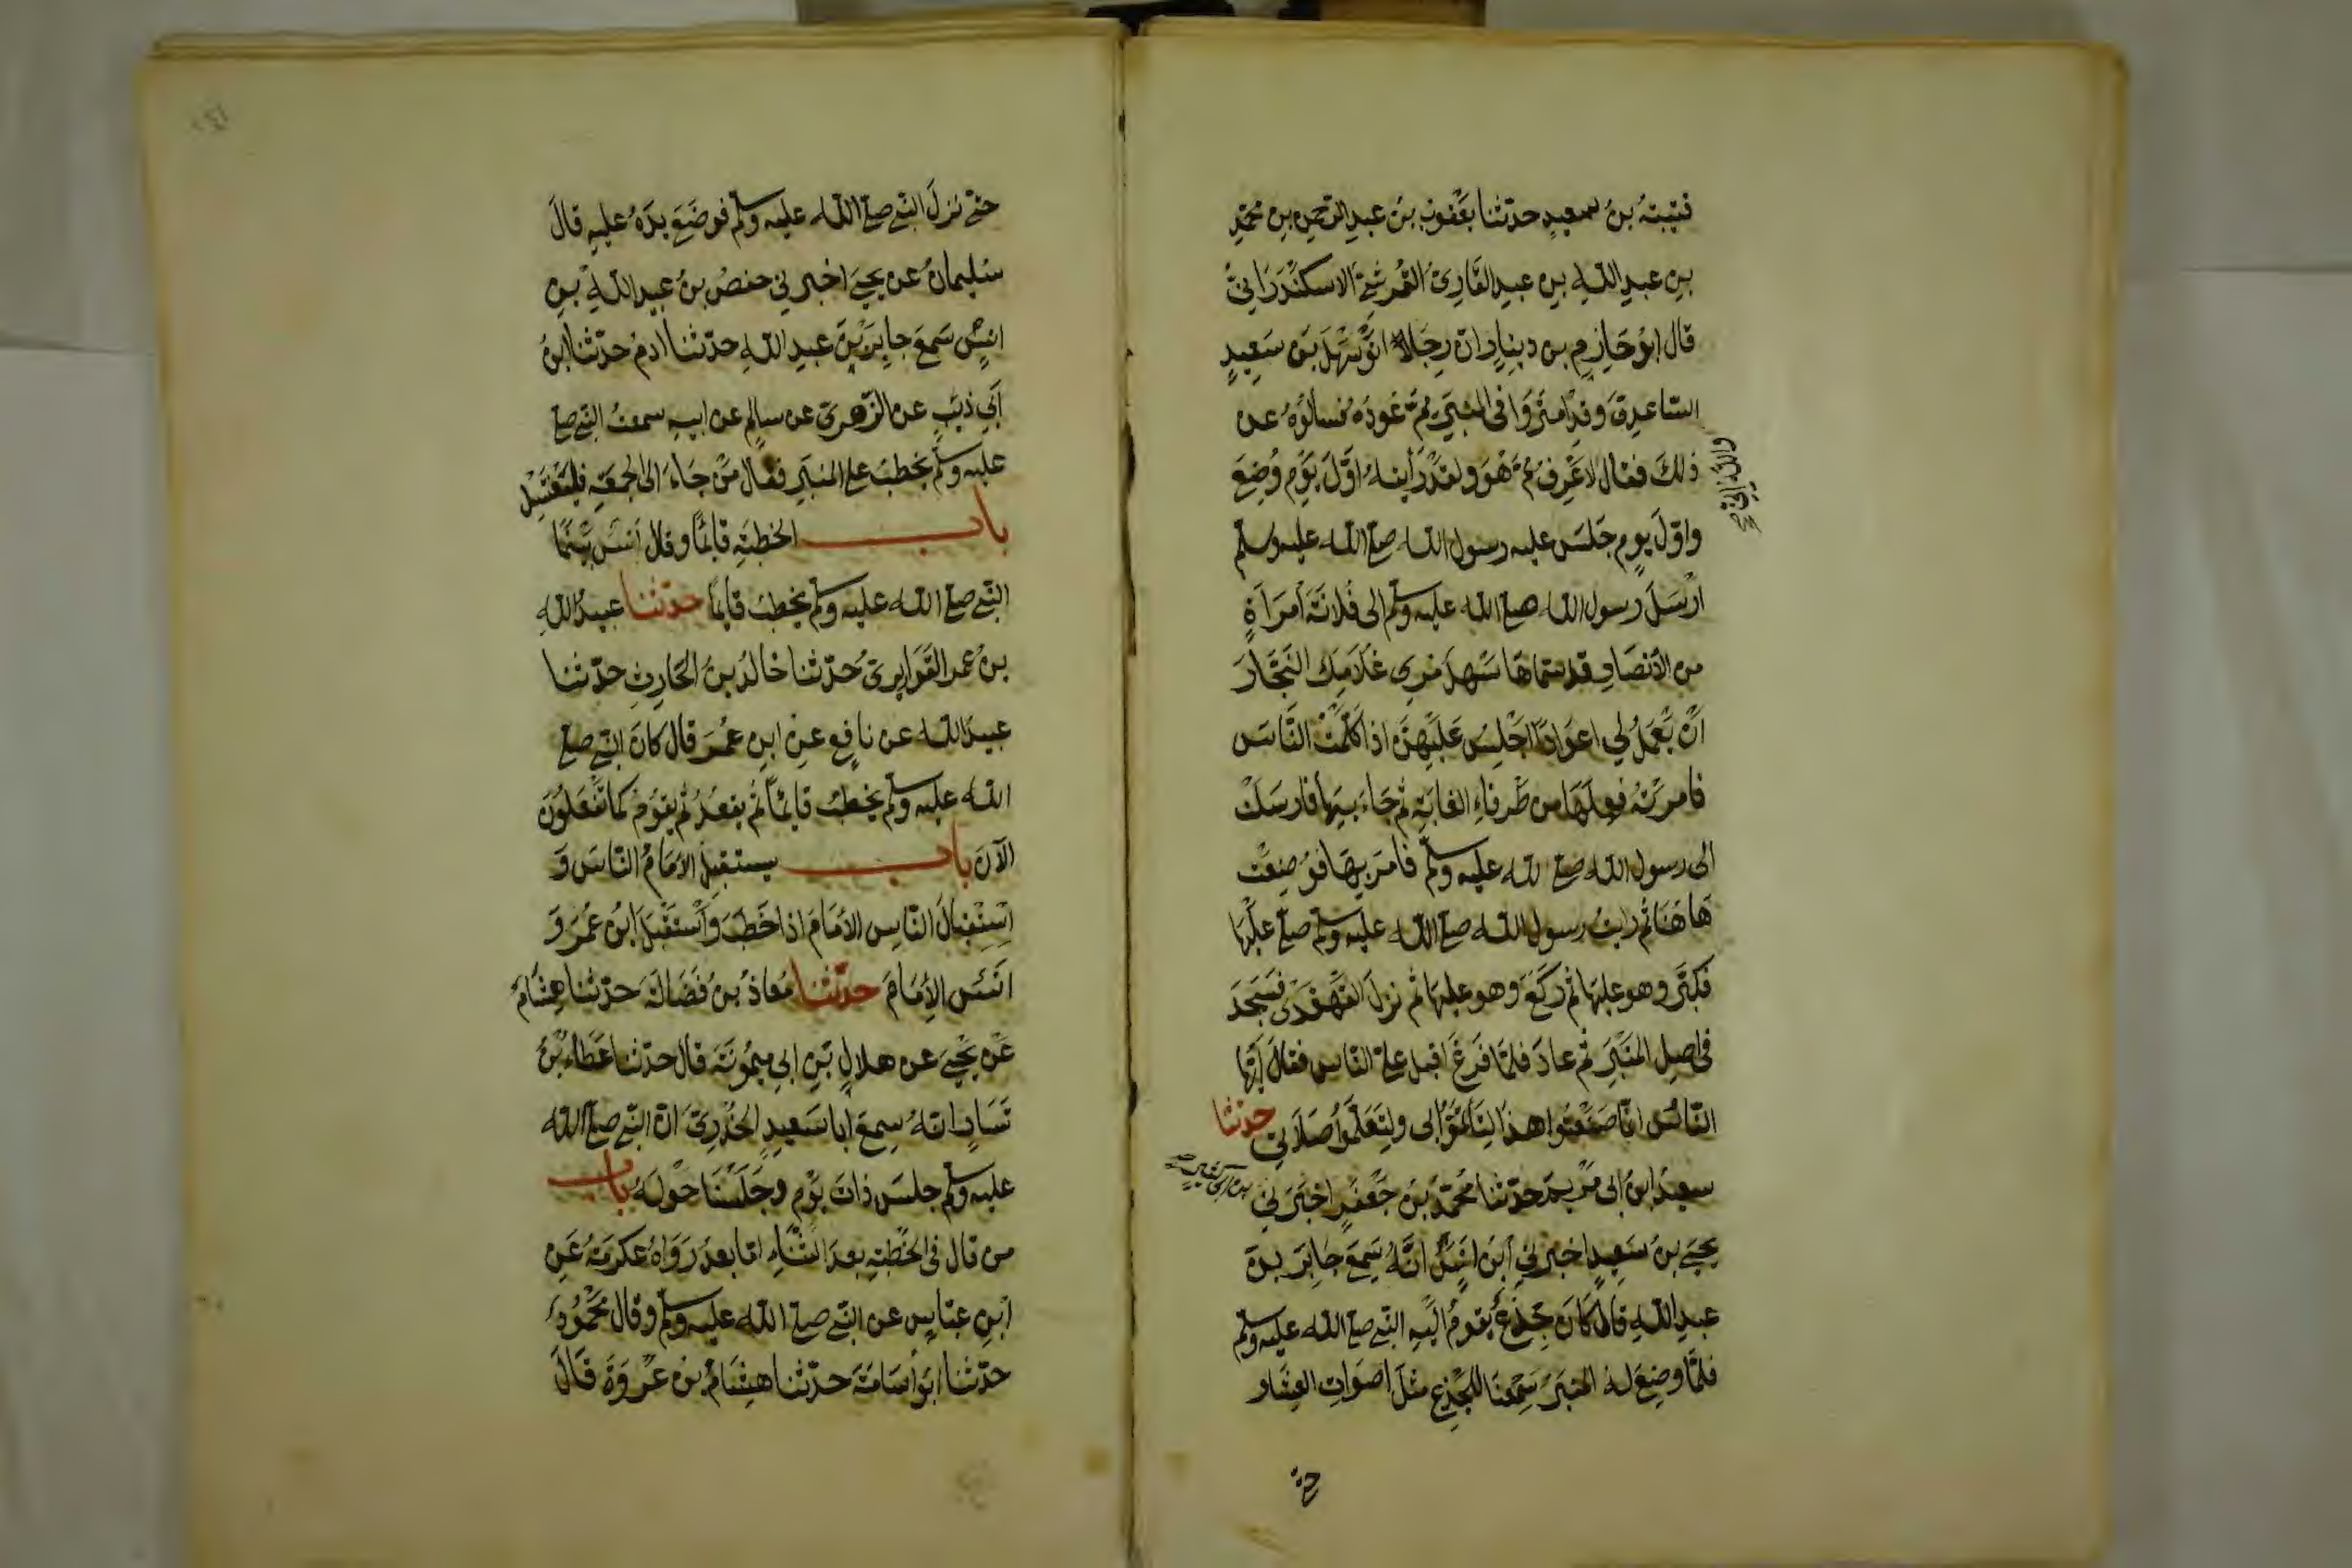 قتيبة بن سعيد حدثنا يعقوب بن عبد الرحمن بن محمد
بن عبد الله بن عبد القاري القرشي الاسكندراني
قال ابو حازم بن دينار ان رجالا اتو سهل بن سعيد
الساعدي وقد امتروا في المنبر مم عوده فسالوه عن
ذلك فقال لاعرف مم هو ولقد رأيته اول يوم وضع
والله اني
واول يوم جلس عليه رسول الله صلع الله عليه وسلم
ارسل رسول الله صلع الله عليه وسلم الى فلانة أمرأة
من الأنصار قد سماها سهل مري غلامك النجار
ان يعمل لي اعوادا اجلس عليهن اذا كلمت الناس
فامرته فعملها من طرفاء الغابة ثم جاء بيها فارسلت
الى رسول الله صلع لله عليه وسلم فامر بها فوضعت
هاهنا ثم رايت رسول الله صلع الله عليه وسلم صلى عليها
فكبر وهو عليها ثم ركع وهو عليها ثم نزل القهقرى فسجد
في اصل المنبر ثم عاد فلما فرغ اقبل على الناس فقال ايها
الناس انما صنعتوا هذا لتأتموا بى ولتعلموا صلاتي حدثنا
سعيد ابن ابى مريم حدثنا محمد بن جعفر اخبرني
يحيى بن سعيد اخبرني ابن انس انه سمع جابر بن
عبد الله قال كان جذع يقوم اليه النبي صلع الله عليه وسلم
فلما وضع له المنبر سمعنا للجذع مثل اصوات العشار
حتى
حتى نزل النبي صلع الله عليه وسلم فوضع يده عليه قال
سليمان عن يحيى اخبرني حفص بن عبيد الله بن
انس سمع جابر بن عبد الله حدثنا ادم حدثنا ابن
أبي ذئب عن الزهري عن سالم عن ابيه سمعت النبي صلع
عليه وسلم يخطب على المنبر فقال من جاء الى الجمعة فليغتسل
باب الخطبة قائما وقال أنس بينما
النبي صلع الله عليه وسلم يخطب قايما حدثنا عبيد الله
بن عمر القواريري حدثنا خالد بن الحارث حدثنا
عبيد الله عن نافع عن ابن عمر قال كان النبي صلع
الله عليه وسلم يخطب قائما ثم يقعد ثم يقوم كما تفعلون
الآن باب يستقبل الامام الناس و
استقبال الناس الامام اذا خطب واستقبل ابن عمر و
انس الإمام حدثنا معاذ بن فضالة حدثنا هشام
عن يحيى عن هلال بن ابي ميمونة قال حدثنا عطاء بن
يسار انه سمع ابا سعيد الخدري ان النبي صلع الله
عليه وسلم جلس ذات يوم وجلسنا حوله باب
من قال في الخطبة بعد الثناء اما بعد رواه عكرمة عن
ابن عباس عن النبي صلع الله عليه وسلم وقال محمود
حدثنا ابو أسامة حدثنا هشام بن عروة قال